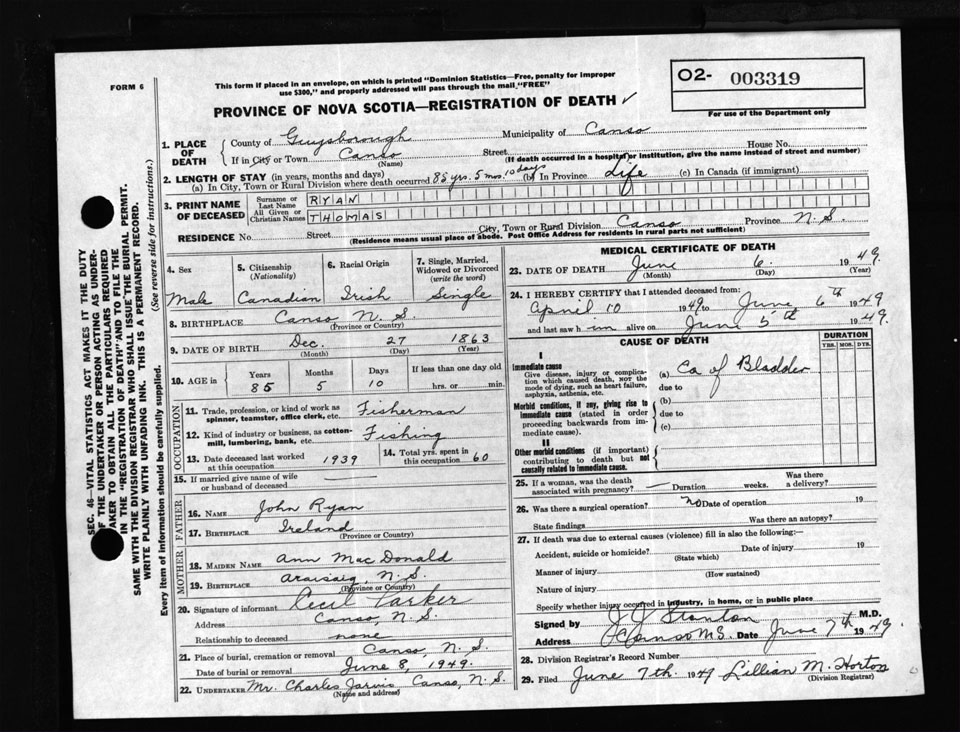 FORM 6
This form if placed in an envelope, on which is printed "Dominion Statistics—Free, penalty for improper
use $300," and properly addressed will pass through the mail "FREE"
O2- 003319
For use of the Department only
PROVINCE OF NOVA SCOTIA—REGISTRATION OF DEATH ✓
1. PLACE OF DEATH
County of Guysborough Municipality of Canso
If in City or Town Canso Street House No.
(Name) (If death occurred in a hospital or institution, give the name instead of street and number)
2. LENGTH OF STAY (in years, months and days)
(a) In City, Town or Rural Division where death occurred 85 yrs. 5 mos. 10 days (b) In Province Life (c) In Canada (if immigrant)
3. PRINT NAME OF DECEASED
Surname or Last Name RYAN
All Given or Christian Names THOMAS
RESIDENCE No. Street City, Town or Rural Division Canso Province N.S.
(Residence means usual place of abode. Post Office Address for residents in rural parts not sufficient)
4. Sex Male
5. Citizenship (Nationality) Canadian
6. Racial Origin Irish
7. Single, Married, Widowed or Divorced (write the word) Single
8. BIRTHPLACE Canso N.S.
(Province or Country)
9. DATE OF BIRTH Dec. 27 1863
(Month) (Day) (Year)
10. AGE in Years Months Days If less than one day old
85 5 10 hrs. or min.
OCCUPATION
11. Trade, profession, or kind of work as spinner, teamster, office clerk, etc. Fisherman
12. Kind of industry or business, as cotton-mill, lumbering, bank, etc. Fishing
13. Date deceased last worked at this occupation 1939
14. Total yrs. spent in this occupation 60
15. If married give name of wife or husband of deceased
FATHER
16. NAME John Ryan
17. BIRTHPLACE Ireland
(Province or Country)
MOTHER
18. MAIDEN NAME Ann MacDonald
19. BIRTHPLACE Araisaig, N.S.
(Province or Country)
20. Signature of informant Cecil Parker
Address Canso, N.S.
Relationship to deceased none
21. Place of burial, cremation or removal Canso, N.S.
Date of burial or removal June 8, 1949.
22. UNDERTAKER Mr. Charles Jarvis Canso, N.S.
(Name and address)
MEDICAL CERTIFICATE OF DEATH
23. DATE OF DEATH June 6. 1949.
(Month) (Day) (Year)
24. I HEREBY CERTIFY that I attended deceased from:
April 10 1949 to June 6th 1949
and last saw h im alive on June 5th 1949.
CAUSE OF DEATH
DURATION
YRS. MOS. DYS.
I
Immediate cause
Give disease, injury or complication which caused death, not the mode of dying, such as heart failure, asphyxia, asthenia, etc.
(a) Ca of Bladder
due to
Morbid conditions, if any, giving rise to immediate cause (stated in order proceeding backwards from immediate cause).
(b)
due to
(c)
II
Other morbid conditions (if important) contributing to death but not causally related to immediate cause.
25. If a woman, was the death associated with pregnancy? — Duration weeks. Was there a delivery?
26. Was there a surgical operation? no Date of operation 19
State findings Was there an autopsy?
27. If death was due to external causes (violence) fill in also the following:—
Accident, suicide or homicide? Date of injury 19
(State which)
Manner of injury
(How sustained)
Nature of injury
Specify whether injury occurred in industry, in home, or in public place
Signed by J J Stanton M.D.
Address Canso N.S. Date June 7th 1949.
28. Division Registrar's Record Number
29. Filed June 7th. 1949 Lillian M. Horton
(Division Registrar)
SEC. 46—VITAL STATISTICS ACT MAKES IT THE DUTY
OF THE UNDERTAKER OR PERSON ACTING AS UNDER-
TAKER TO OBTAIN ALL THE PARTICULARS REQUIRED
IN THE "REGISTRATION OF DEATH" AND TO FILE THE
SAME WITH THE DIVISION REGISTRAR WHO SHALL ISSUE THE BURIAL PERMIT.
WRITE PLAINLY WITH UNFADING INK. THIS IS A PERMANENT RECORD.
Every item of information should be carefully supplied. (See reverse side for instructions.)